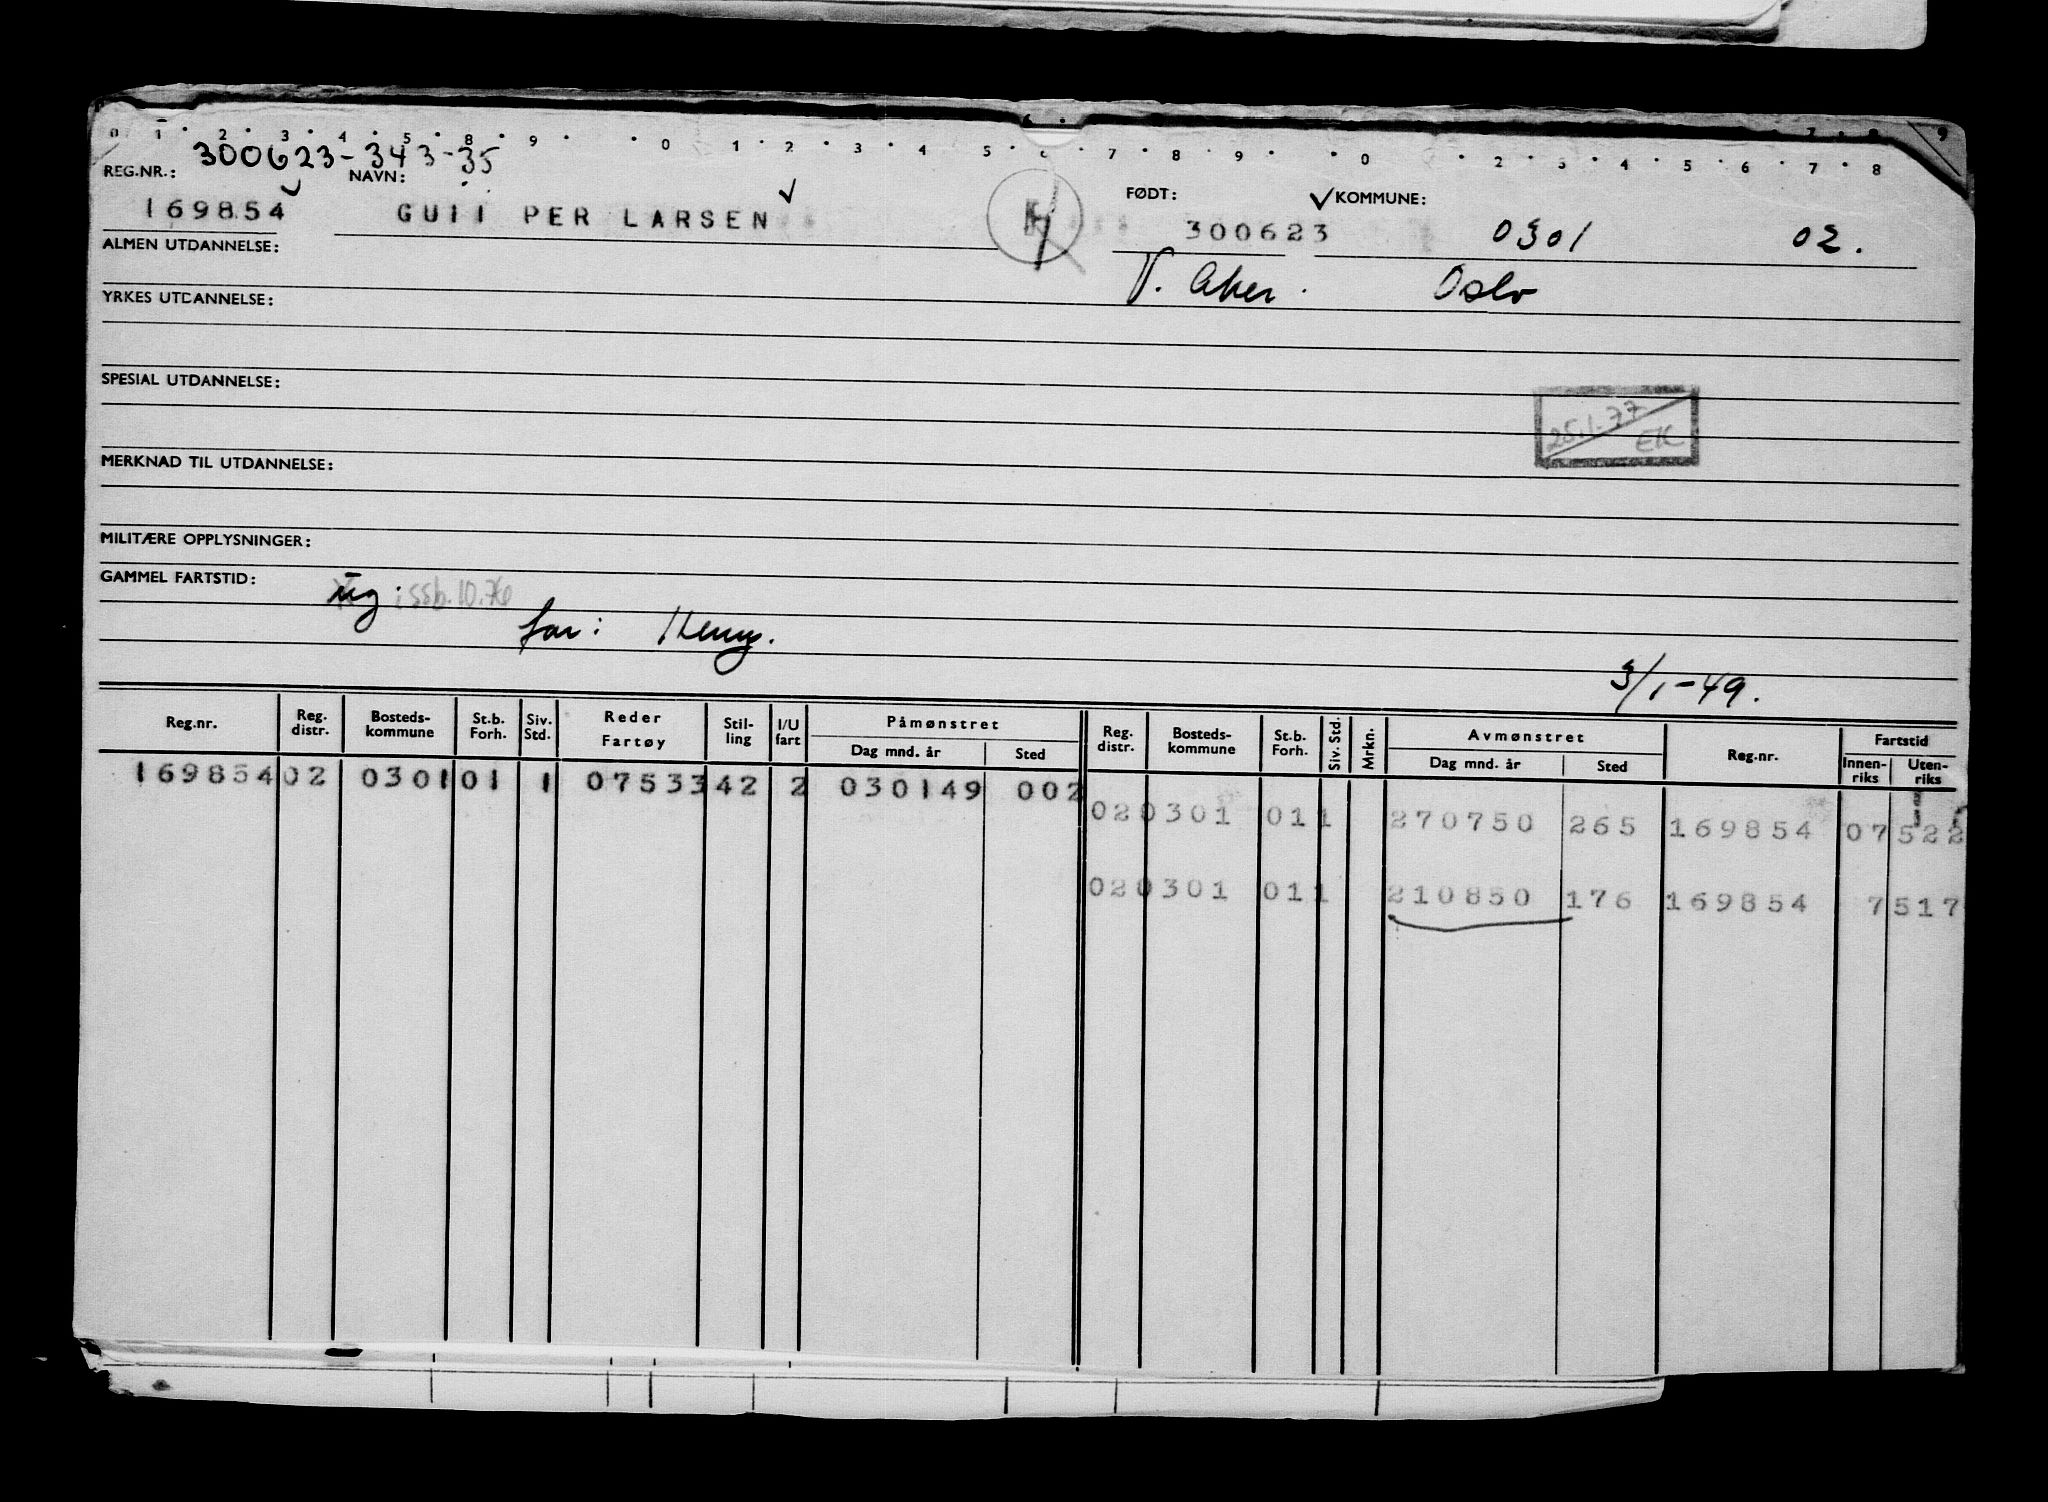 300623-343-35
REG.NR.: NAVN: FØDT: KOMMUNE:
169854 GUII PER LARSEN 300623 0301 02.
ALMEN UTDANNELSE: V. Aker. Oslo
YRKES UTDANNELSE:
SPESIAL UTDANNELSE:
25.1.77
EK
MERKNAD TIL UTDANNELSE:
MILITÆRE OPPLYSNINGER:
GAMMEL FARTSTID:
ug i ssb. 10.76
far: Henry.
3/1-49.
Reg.nr. Reg. distr. Bosteds-kommune St.b. Forh. Siv. Std. Reder Fartøy Stil-ling I/U fart Påmønstret Dag mnd. år Sted Reg. distr. Bosteds-kommune St.b. Forh. Siv. Std. Mrkn. Avmønstret Dag mnd. år Sted Reg.nr. Fartstid Innen-riks Uten-riks
169854 02 0301 01 1 07533 42 2 030149 002
02 0301 01 1 270750 265 169854 07 522
02 0301 01 1 210850 176 169854 7 517